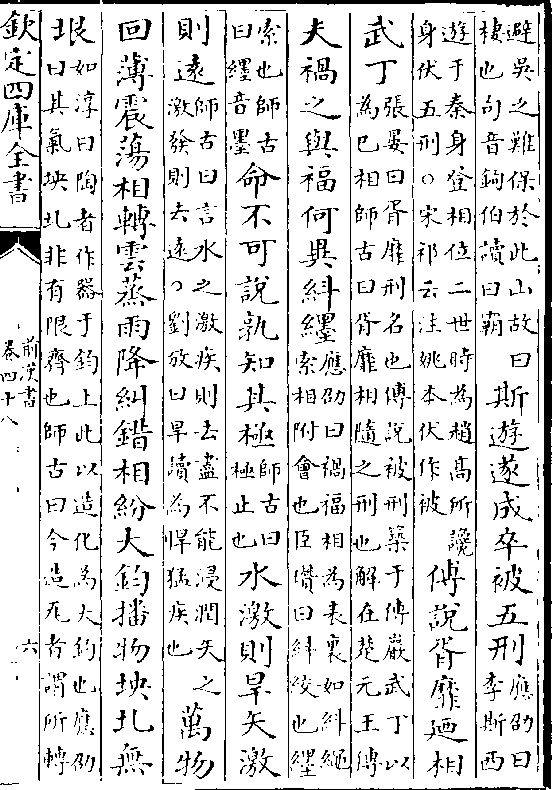 避吳之難保於此山故曰
棲也句音鉤伯讀曰霸
斯遊遂成卒被五刑
應劭曰
李斯西
遊于秦身登相位二世時為趙高所讒
身伏五刑○宋祁云注姚本伏作被
傅說胥靡廼相
武丁
張晏曰胥靡刑名也傅說被刑築于傅巖武丁以
為己相師古曰胥靡相隨之刑也解在楚元王傳
夫禍之與福何異糾纆
應劭曰禍福相為表裏如糾繩
索相附會也臣瓚曰糾絞也纆
索也師古
曰纆音墨
命不可說孰知其極
師古曰
極止也
水激則旱矢激
則遠
師古曰言水之激疾則去盡不能浸潤矢之
激發則去遠○劉攽曰旱讀為悍猛疾也
萬物
回薄震蕩相轉雲蒸雨降糾錯相紛大鈞播物坱圠無
垠
如淳曰陶者作器于鈞上此以造化為大鈞也應劭
曰其氣坱圠非有限齊也師古曰今造瓦者謂所轉
欽定四庫全書
前漢書
卷四十八
六